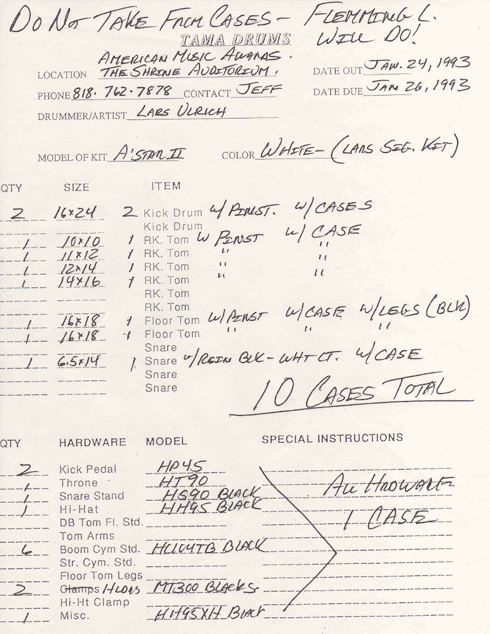 DO NOT TAKE FROM CASES - FLEMMING L.
WILL DO!
TAMA DRUMS
AMERICAN MUSIC AWARDS.
LOCATION THE SHRINE AUDITORIUM. DATE OUT JAN. 24, 1993
PHONE 818. 762-7878 CONTACT JEFF DATE DUE JAN 26, 1993
DRUMMER/ARTIST LARS ULRICH
MODEL OF KIT A'STAR II COLOR WHITE - (LARS SIG. KIT)
QTY SIZE ITEM
2 16x24 2 Kick Drum W/ PINST. W/ CASES
Kick Drum
1 10x10 1 RK. Tom W PINST W/ CASE
1 11x12 1 RK. Tom " "
1 12x14 1 RK. Tom " "
1 14x16 1 RK. Tom " "
RK. Tom
RK. Tom
1 16x18 1 Floor Tom W/PINST W/CASE W/LEGS (BLK)
1 16x18 1 Floor Tom " " "
Snare
1 6.5x14 1 Snare W/ BLK - WHT CT. W/CASE
Snare
Snare
10 CASES TOTAL
QTY HARDWARE MODEL SPECIAL INSTRUCTIONS
2 Kick Pedal HP45
1 Throne HT90
1 Snare Stand HS90 BLACK
1 Hi-Hat HH95 BLACK
DB Tom Fl. Std.
Tom Arms
6 Boom Cym Std. HC104TB BLACK
Str. Cym. Std.
Floor Tom Legs
2 Clamps HLDRS MT300 BLACKS
Hi-Ht Clamp
1 Misc. HH95XH BLACK
ALL HRDWARE
1 CASE